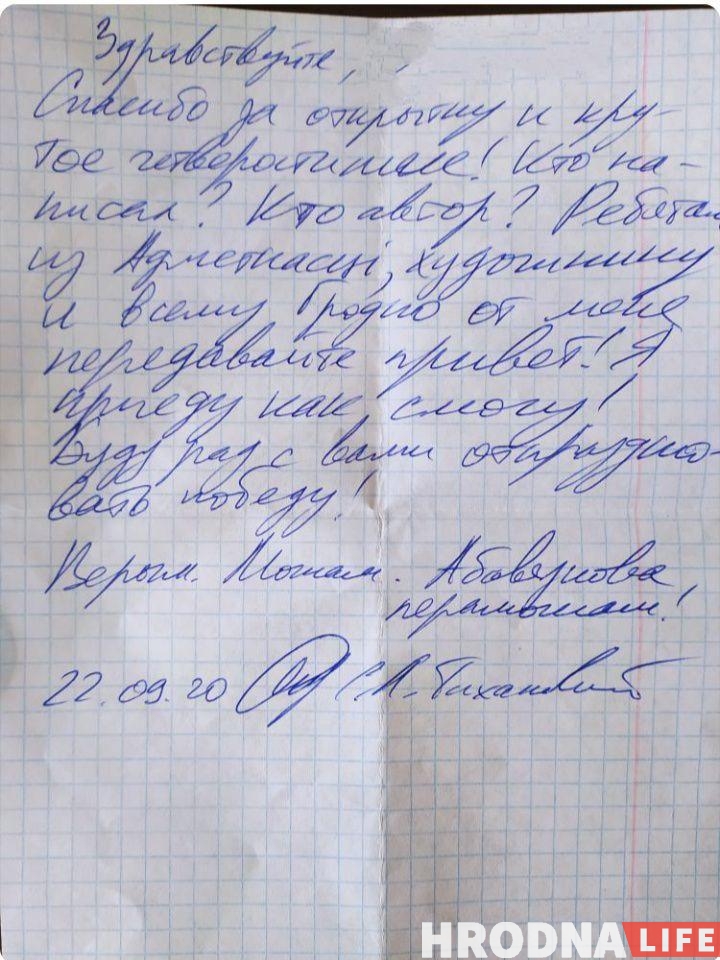 Здравствуйте,
Спасибо за открытку и кру-
тое четверостишие! Кто на-
писал? Кто автор? Ребятам
из Адметнасці, художнику
и всему Гродно от меня
передавайте привет! Я
приеду как смогу!
Буду рад с вами отпраздно-
вать победу!
Верым.Можам. Абавязкова
пераможам!
22.09.20 С.Л. Тихановский
HRODNA LIFE